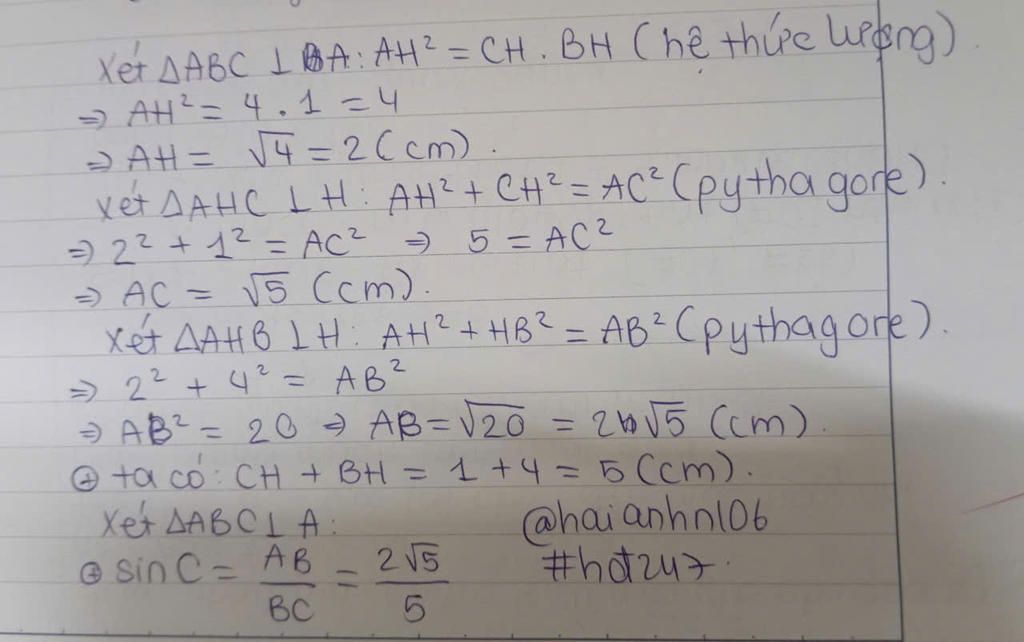 Xét ΔABC ⊥ A: AH² = CH . BH (hệ thức lượng).
⇒ AH² = 4 . 1 = 4
⇒ AH = √4 = 2 (cm).
Xét ΔAHC ⊥ H: AH² + CH² = AC² (pythagore).
⇒ 2² + 1² = AC² ⇒ 5 = AC²
⇒ AC = √5 (cm).
Xét ΔAHB ⊥ H: AH² + HB² = AB² (pythagore).
⇒ 2² + 4² = AB²
⇒ AB² = 20 ⇒ AB = √20 = 2√5 (cm).
⊕ ta có: CH + BH = 1 + 4 = 5 (cm).
Xét ΔABC ⊥ A: @haianhn106
⊕ sin C = AB/BC = 2√5/5 #hđ247.